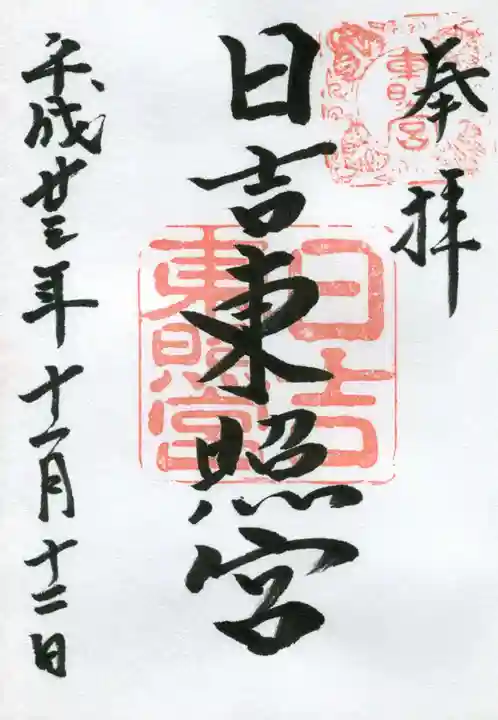 奉拝
東照宮
日吉東照宮
日吉
東照宮
平成廿三年十一月十二日